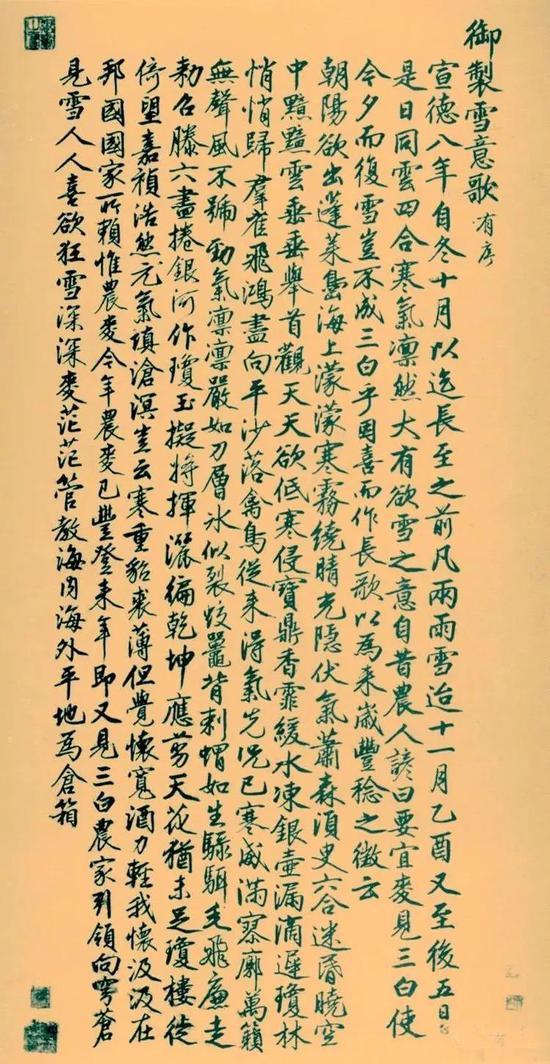 御製雪意歌 有序
宣德八年自冬十月以迄長至之前凡兩雨雪迨十一月乙酉又至後五日也
是日同雲四合寒氣凛然大有欲雪之意自昔農人諺曰要宜麥見三白使
今夕而復雪豈不成三白乎因喜而作長歌以為来歲豐稔之徵云
朝陽欲出蓬萊島海上濛濛寒霧繞晴光隱伏氣蕭森須臾六合迷昏曉空
中黯黯雲垂垂舉首觀天天欲低寒侵寶鼎香霏緩水凍銀壺漏滴遲瓊林
悄悄歸群雀飛鴻盡向平沙落禽鳥從来得氣先况已寒威滿寥廓萬籟
無聲風不號勁氣凛凛嚴如刀層冰似裂蛟鼉背刺蝟如生騄駬毛飛廉走
勅召滕六盡捲銀河作瓊玉擬将揮灑徧乾坤應剪天花猶未足瓊樓徙
倚望嘉禎浩然元氣填滄溟豈云寒重貂裘薄但覺懷寬酒力輕我懷汲汲在
邦國國家所賴惟農麥今年農麥已豐登来年即又見三白農家引領向穹蒼
見雪人人喜欲狂雪深深麥茫茫管教海内海外平地為倉箱